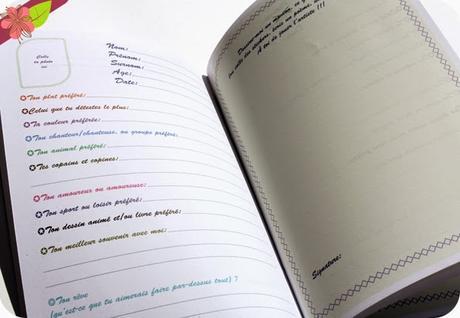 Colle
ta photo
ici
Nom:
Prénom:
Surnom:
Age:
Date:
Ton plat préféré:
Celui que tu détestes le plus:
Ta couleur préférée:
Ton chanteur/chanteuse, ou groupe préféré:
Ton animal préféré:
Tes copains et copines:
Ton amoureux ou amoureuse:
Ton sport ou loisir préféré:
Ton dessin animé et/ou livre préféré:
Ton meilleur souvenir avec moi:
Ton rêve
(qu'est-ce que tu aimerais faire par-dessus tout) ?
A toi de jouer l'artiste !!!
Signature: